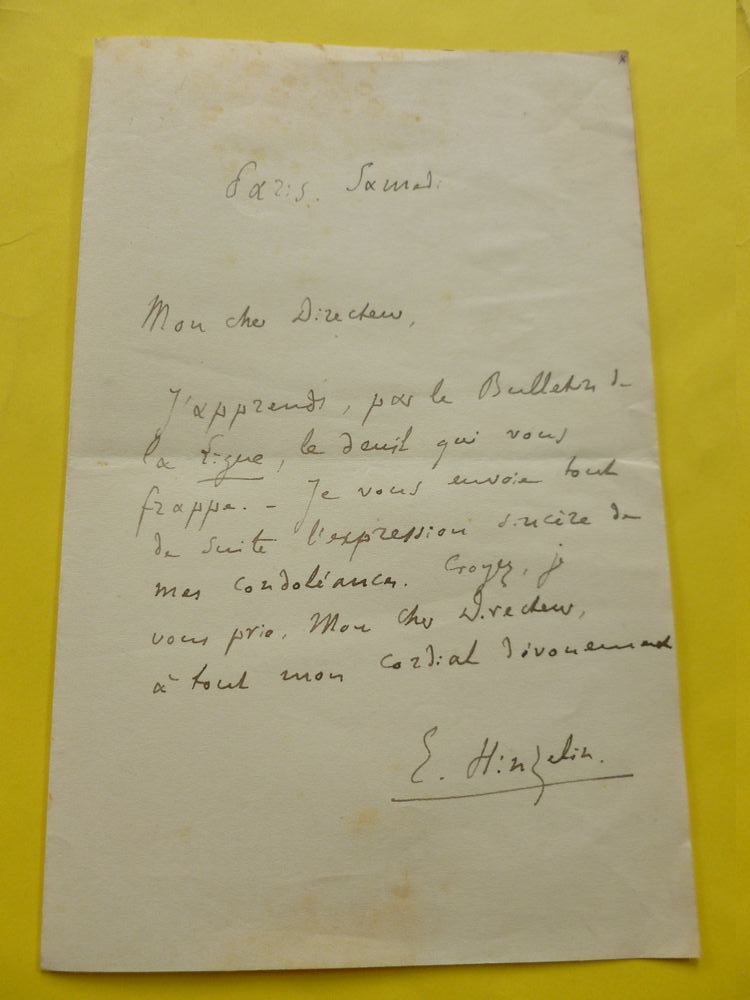 Paris. Samedi
Mon cher Directeur,
J'apprends, par le Bulletin de
la Ligue, le deuil qui vous
frappe. - Je vous envoie tout
de suite l'expression sincère de
mes condoléances. Croyez, je
vous prie, Mon cher Directeur,
à tout mon cordial dévouement
E. Hinzelin.